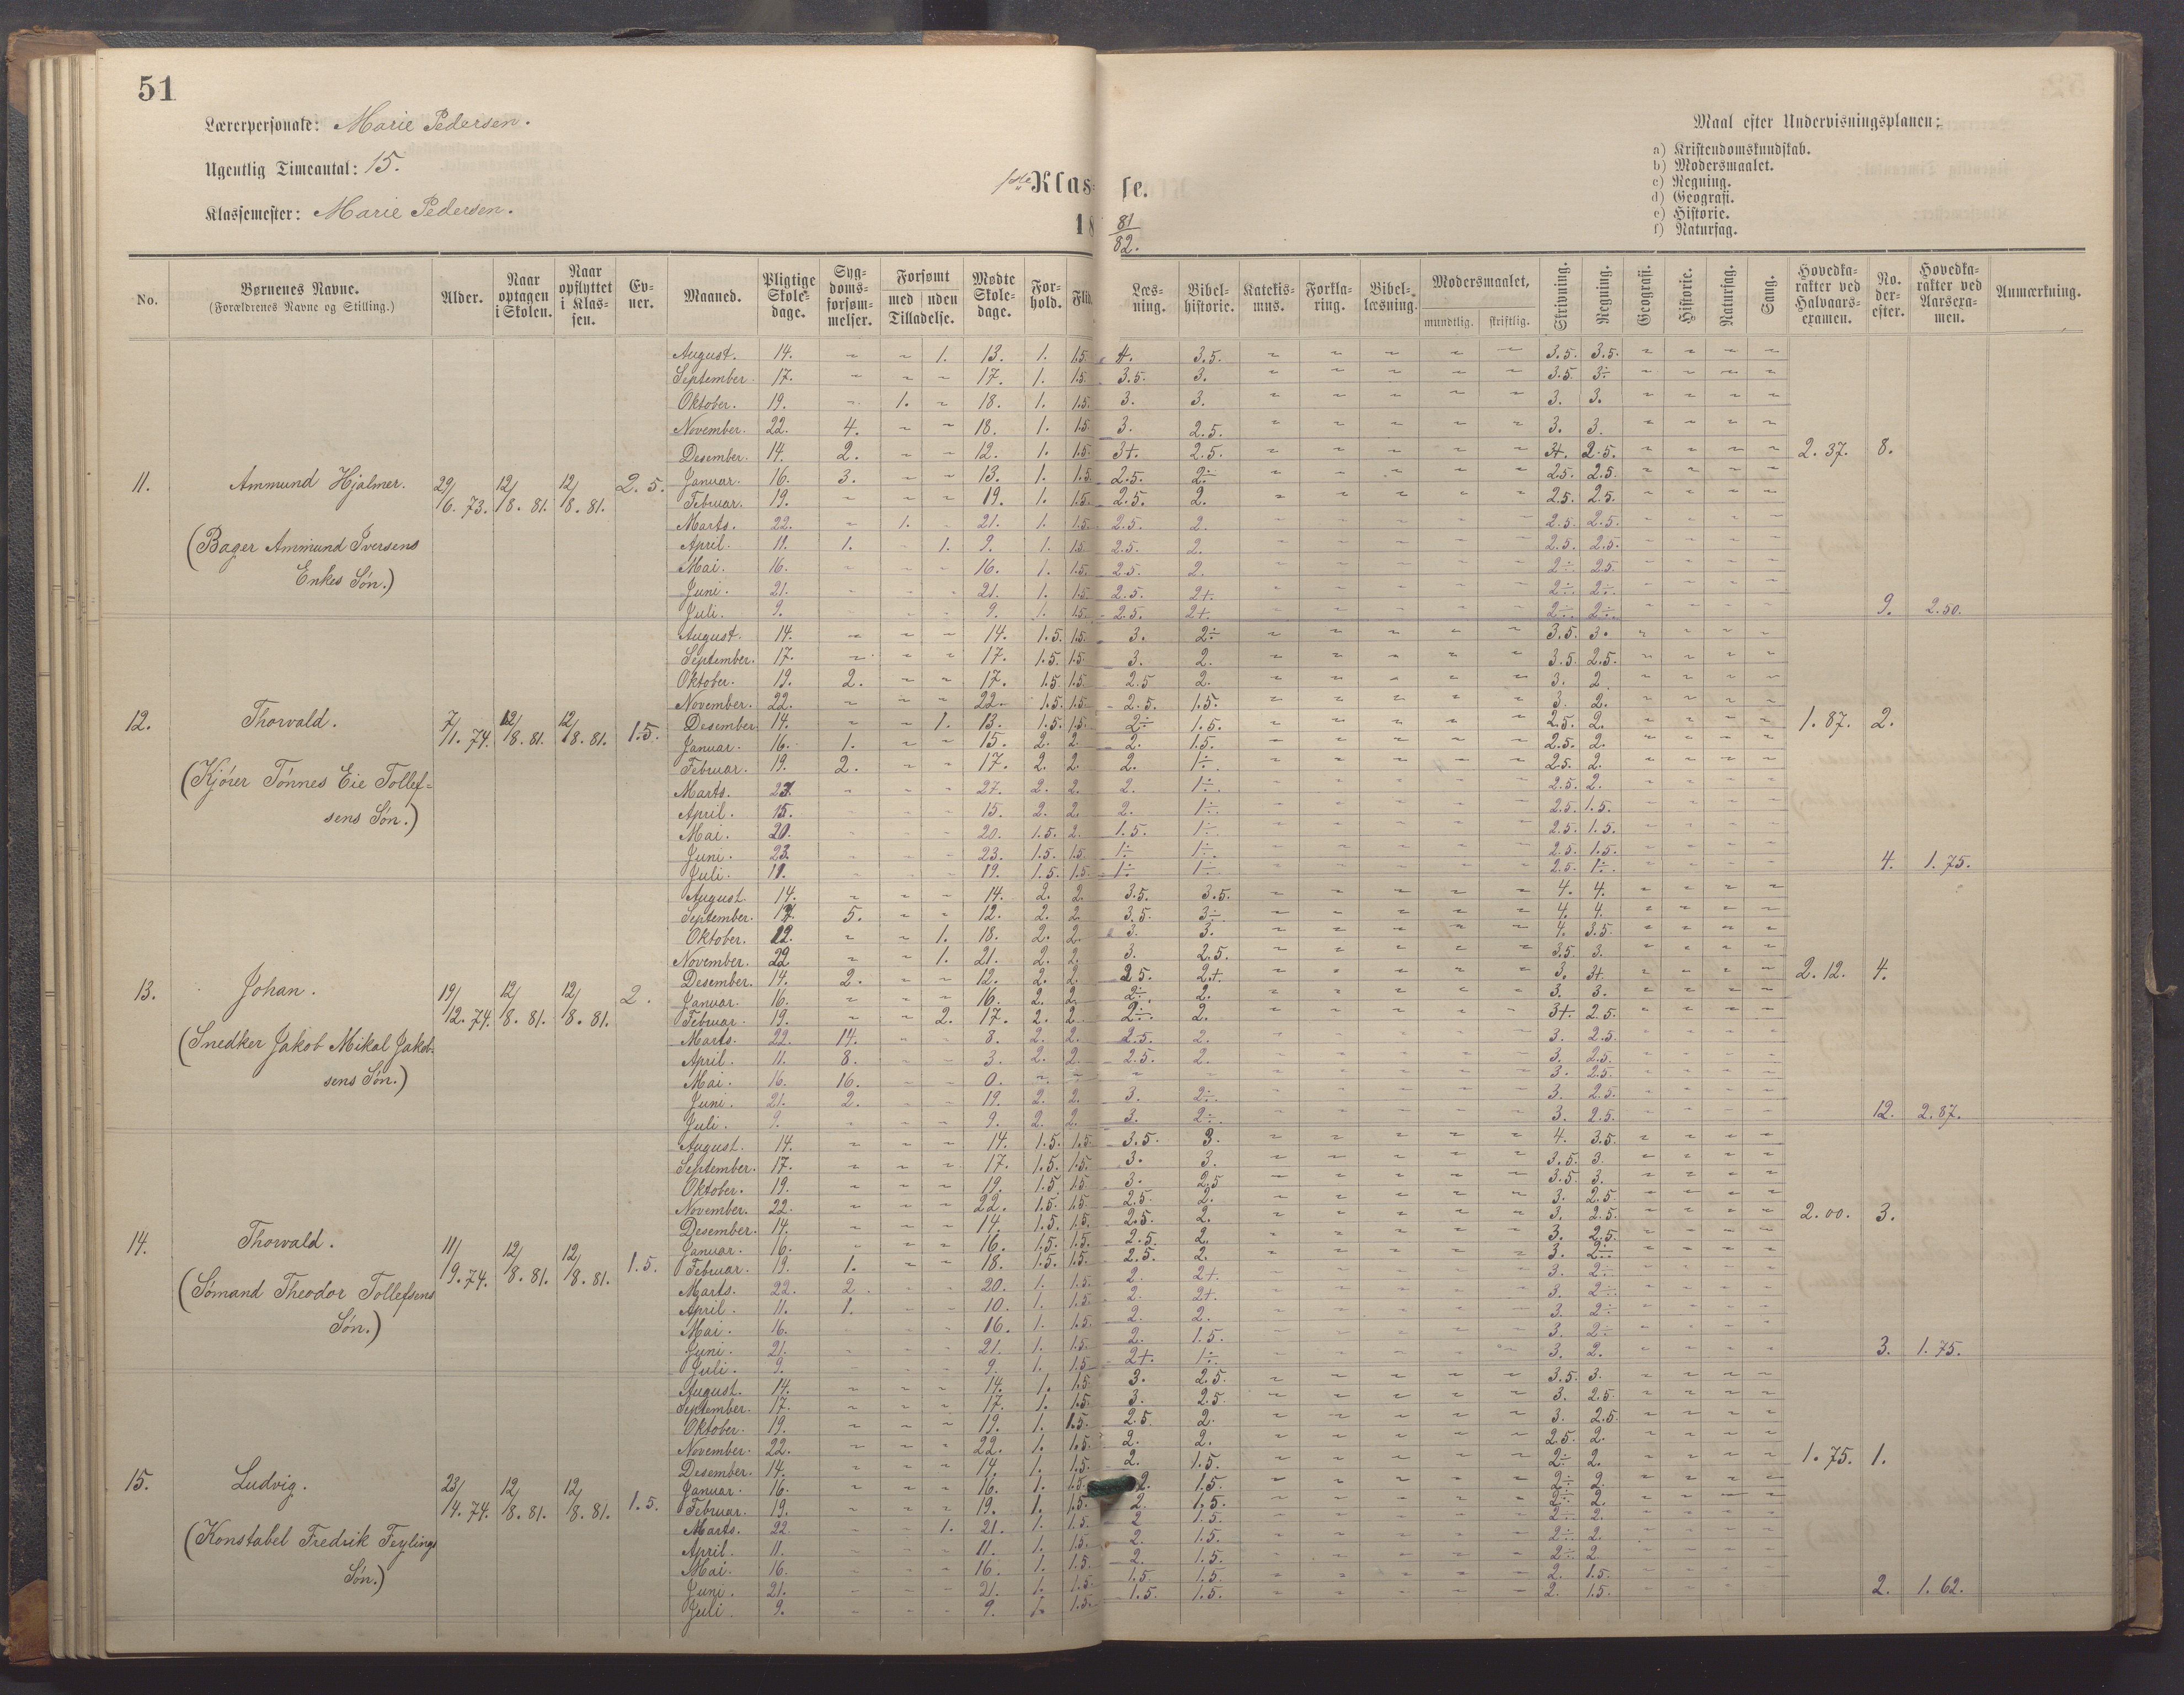 51
Lærerpersonale: Marie Pedersen.
Ugentlig Timeantal: 15.
Klassemester: Marie Pedersen.
1ste Klasse.
18 81/82.
Maal efter Undervisningsplanen:
a) Kristendomskundskab.
b) Modersmaalet.
c) Regning.
d) Geografi.
e) Historie.
f) Naturfag.
No. | Børnenes Navne. (Forældrenes Navne og Stilling.) | Alder. | Naar optagen i Skolen. | Naar opflyttet i Klassen. | Evner. | Maaned. | Pligtige Skoledage. | Sygdomsforsømmelser. | Forsømt med Tilladelse. | uden Tilladelse. | Mødte Skoledage. | Forhold. | Flid. | Læsning. | Bibelhistorie. | Katekismus. | Forklaring. | Bibellæsning. | Modersmaalet, mundtlig. | skriftlig. | Skrivning. | Regning. | Geografi. | Historie. | Naturfag. | Sang. | Hovedkarakter ved Halvaarsexamen. | No. derefter. | Hovedkarakter ved Aarsexamen. | Anmærkning.
11. Ammund Hjalmer. 29/6. 73. 12/8. 81. 12/8. 81. 2.5.
(Bager Ammund Iversens
Enkes Søn.)
August. 14. " " 1. 13. 1. 1.5. 4. 3.5. " " " " " 3.5. 3.5. " " " "
September. 17. " " " 17. 1. 1.5. 3.5. 3. " " " " " 3.5. 3÷ " " " "
Oktober. 19. " 1. " 18. 1. 1.5. 3. 3. " " " " " 3. 3. " " " "
November. 22. 4. " " 18. 1. 1.5. 3. 2.5. " " " " " 3. 3. " " " "
Desember. 14. 2. " " 12. 1. 1.5. 3+. 2.5. " " " " " 3+. 2.5. " " " " 2.37. 8.
Januar. 16. 3. " " 13. 1. 1.5. 2.5. 2÷ " " " " " 2.5. 2.5. " " " "
Februar. 19. " " " 19. 1. 1.5. 2.5. 2. " " " " " 2.5. 2.5. " " " "
Marts. 22. " 1. " 21. 1. 1.5. 2.5. 2. " " " " " 2.5. 2.5. " " " "
April. 11. 1. " 1. 9. 1. 1.5. 2.5. 2. " " " " " 2.5. 2.5. " " " "
Mai. 16. " " " 16. 1. 1.5. 2.5. 2. " " " " " 2÷. 2.5 " " " "
Juni. 21. " " " 21. 1. 1.5. 2.5. 2+. " " " " " 2÷. 2÷. " " " "
Juli. 9. " " " 9. 1. 1.5. 2.5. 2+. " " " " " 2÷. 2÷. " " " " 9. 2.50.
12. Thorvald. 7/1. 74. 12/8. 81. 12/8. 81. 1.5.
(Kjører Tønnes Eie Tollef-
sens Søn.)
August. 14. " " " 14. 1.5. 1.5. 3. 2÷ " " " " " 3.5. 3. " " " "
September. 17. " " " 17. 1.5. 1.5. 3. 2. " " " " " 3.5. 2.5. " " " "
Oktober. 19. 2. " " 17. 1.5. 1.5. 2.5 2. " " " " " 3. 2. " " " "
November. 22. " " " 22. 1.5. 1.5. 2.5. 1.5. " " " " " 3. 2. " " " "
Desember. 14. " " 1. 13. 1.5. 1.5. 2÷ 1.5. " " " " " 2.5. 2. " " " " 1.87. 2.
Januar. 16. 1. " " 15. 2. 2. 2. 1.5. " " " " " 2.5. 2. " " " "
Februar. 19. 2. " " 17. 2. 2. 2. 1÷. " " " " " 2.5. 2. " " " "
Marts. 27. " " " 27. 2. 2. 2. 1÷. " " " " " 2.5. 2. " " " "
April. 15. " " " 15. 2. 2. 2. 1÷. " " " " " 2.5. 1.5. " " " "
Mai. 20. " " " 20. 1.5. 2. 1.5. 1÷. " " " " " 2.5. 1.5. " " " "
Juni. 23. " " " 23. 1.5. 1.5 1÷. 1÷. " " " " " 2.5. 1.5. " " " "
Juli. " " " 19. 1.5. 1.5. 1÷. 1÷. " " " " " 2.5. 1÷. " " " " 4. 1.75.
13. Johan. 19/12. 74. 12/8. 81. 12/8. 81. 2.
(Snedker Jakob Mikal Jakob-
sens Søn.)
August. 14. " " " 14. 2. 2. 3.5. 3.5. " " " " " 4. 4. " " " "
September. 17. 5. " " 12. 2. 2. 3.5. 3÷ " " " " " 4. 4. " " " "
Oktober. " " 1. 18. 2. 2. 3. 3. " " " " " 4. 3.5. " " " "
November. 22 " " 1. 21. 2. 2. 3. 2.5. " " " " " 3.5. 3. " " " "
Desember. 14. 2. " " 12. 2. 2. 2.5. 2+ " " " " " 3. 3+. " " " " 2.12. 4.
Januar. 16. " " " 16. 2. 2. 2÷. 2. " " " " " 3. 3. " " " "
Februar. 19. " " 2. 17. 2. 2. 2÷. 2. " " " " " 3+. 2.5. " " " "
Marts. 22. 14. " " 8. 2. 2. 2.5. 2. " " " " " 3. 2.5. " " " "
April. 11. 8. " " 3. 2. 2. 2.5. 2. " " " " " 3. 2.5. " " " "
Mai. 16. 16. " " 0. " " " " " " " " " 3. 2.5. " " " "
Juni. 21. 2. " " 19. 2. 2. 3. 2÷. " " " " " 3. 2.5. " " " "
Juli. 9. " " " 9. 2. 2. 3. 2÷. " " " " " 3. 2.5. " " " " 12. 2.87.
14. Thorvald. 11/9. 74. 12/8. 81. 12/8. 81. 1.5.
(Sømand Theodor Tollefsens
Søn.)
August. 14. " " " 14. 1.5. 1.5. 3.5. 3. " " " " " 4. 3.5. " " " "
September. 17. " " " 17. 1.5. 1.5. 3. 3. " " " " " 3.5. 3. " " " "
Oktober. 19. " " " 19. 1.5 1.5. 3. 2.5 " " " " " 3.5. 3. " " " "
November. 22. " " " 22. 1.5. 1.5. 2.5. 2. " " " " " 3. 2.5. " " " "
Desember. 14. " " " 14. 1.5. 1.5. 2.5. 2. " " " " " 3. 2.5. " " " " 2.00. 3.
Januar. 16. " " " 16. 1.5. 1.5. 2.5. 2. " " " " " 3. 2.5. " " " "
Februar. 19. 1. " " 18. 1.5. 1.5. 2.5. 2. " " " " " 3. 2÷. " " " "
Marts. 22. 2. " " 20. 1. 1.5. 2. 2+. " " " " " 3. 2÷. " " " "
April. 11. 1. " " 10. 1. 1.5. 2. 2+. " " " " " 3. 2÷. " " " "
Mai. 16. " " " 16. 1. 1.5. 2. 2. " " " " " 3. 2÷. " " " "
Juni. 21. " " " 21. 1. 1.5. 2. 1.5. " " " " " 3. 2÷ " " " "
Juli. 9. " " " 9. 1. 1.5. 2+. 1÷. " " " " " 3. 2. " " " " 3. 1.75.
15. Ludvig. 23/4. 74. 12/8. 81. 12/8. 81. 1.5.
(Konstabel Fredrik Feylings
Søn.)
August. 14. " " " 14. 1. 1.5. 3. 2.5. " " " " " 3.5. 3. " " " "
September. 17. " " " 17. 1. 1.5. 3. 2.5. " " " " " 3. 2.5. " " " "
Oktober. 19. " " " 19. 1. 1.5. 2.5. 2. " " " " " 3. 2.5. " " " "
November. 22. " " " 22. 1. 1.5. 2. 2. " " " " " 2.5. 2. " " " "
Desember. 14. " " " 14. 1. 1.5. 2. 1.5. " " " " " 2÷ 2. " " " " 1.75. 1.
Januar. 16. " " " 16. 1. 1.5. 2. 1.5. " " " " " 2÷ 2. " " " "
Februar. 19. " " " 19. 1. 1.5. 2. 1.5. " " " " " 2÷ 2. " " " "
Marts. 22. " " 1. 21. 1. 1.5. 2 1.5. " " " " " 2÷ 2. " " " "
April. 11. " " " 11. 1. 1.5. 2. 1.5. " " " " " 2÷. 2. " " " "
Mai. 16. " " " 16. 1. 1.5. 2. 1.5. " " " " " 2÷. 2. " " " "
Juni. 21. " " " 21. 1. 1.5. 1.5. 1.5. " " " " " 2. 1.5. " " " "
Juli. 9. " " " 9. 1. 1.5. 1.5. 1.5. " " " " " 2. 1.5. " " " " 2. 1.62.